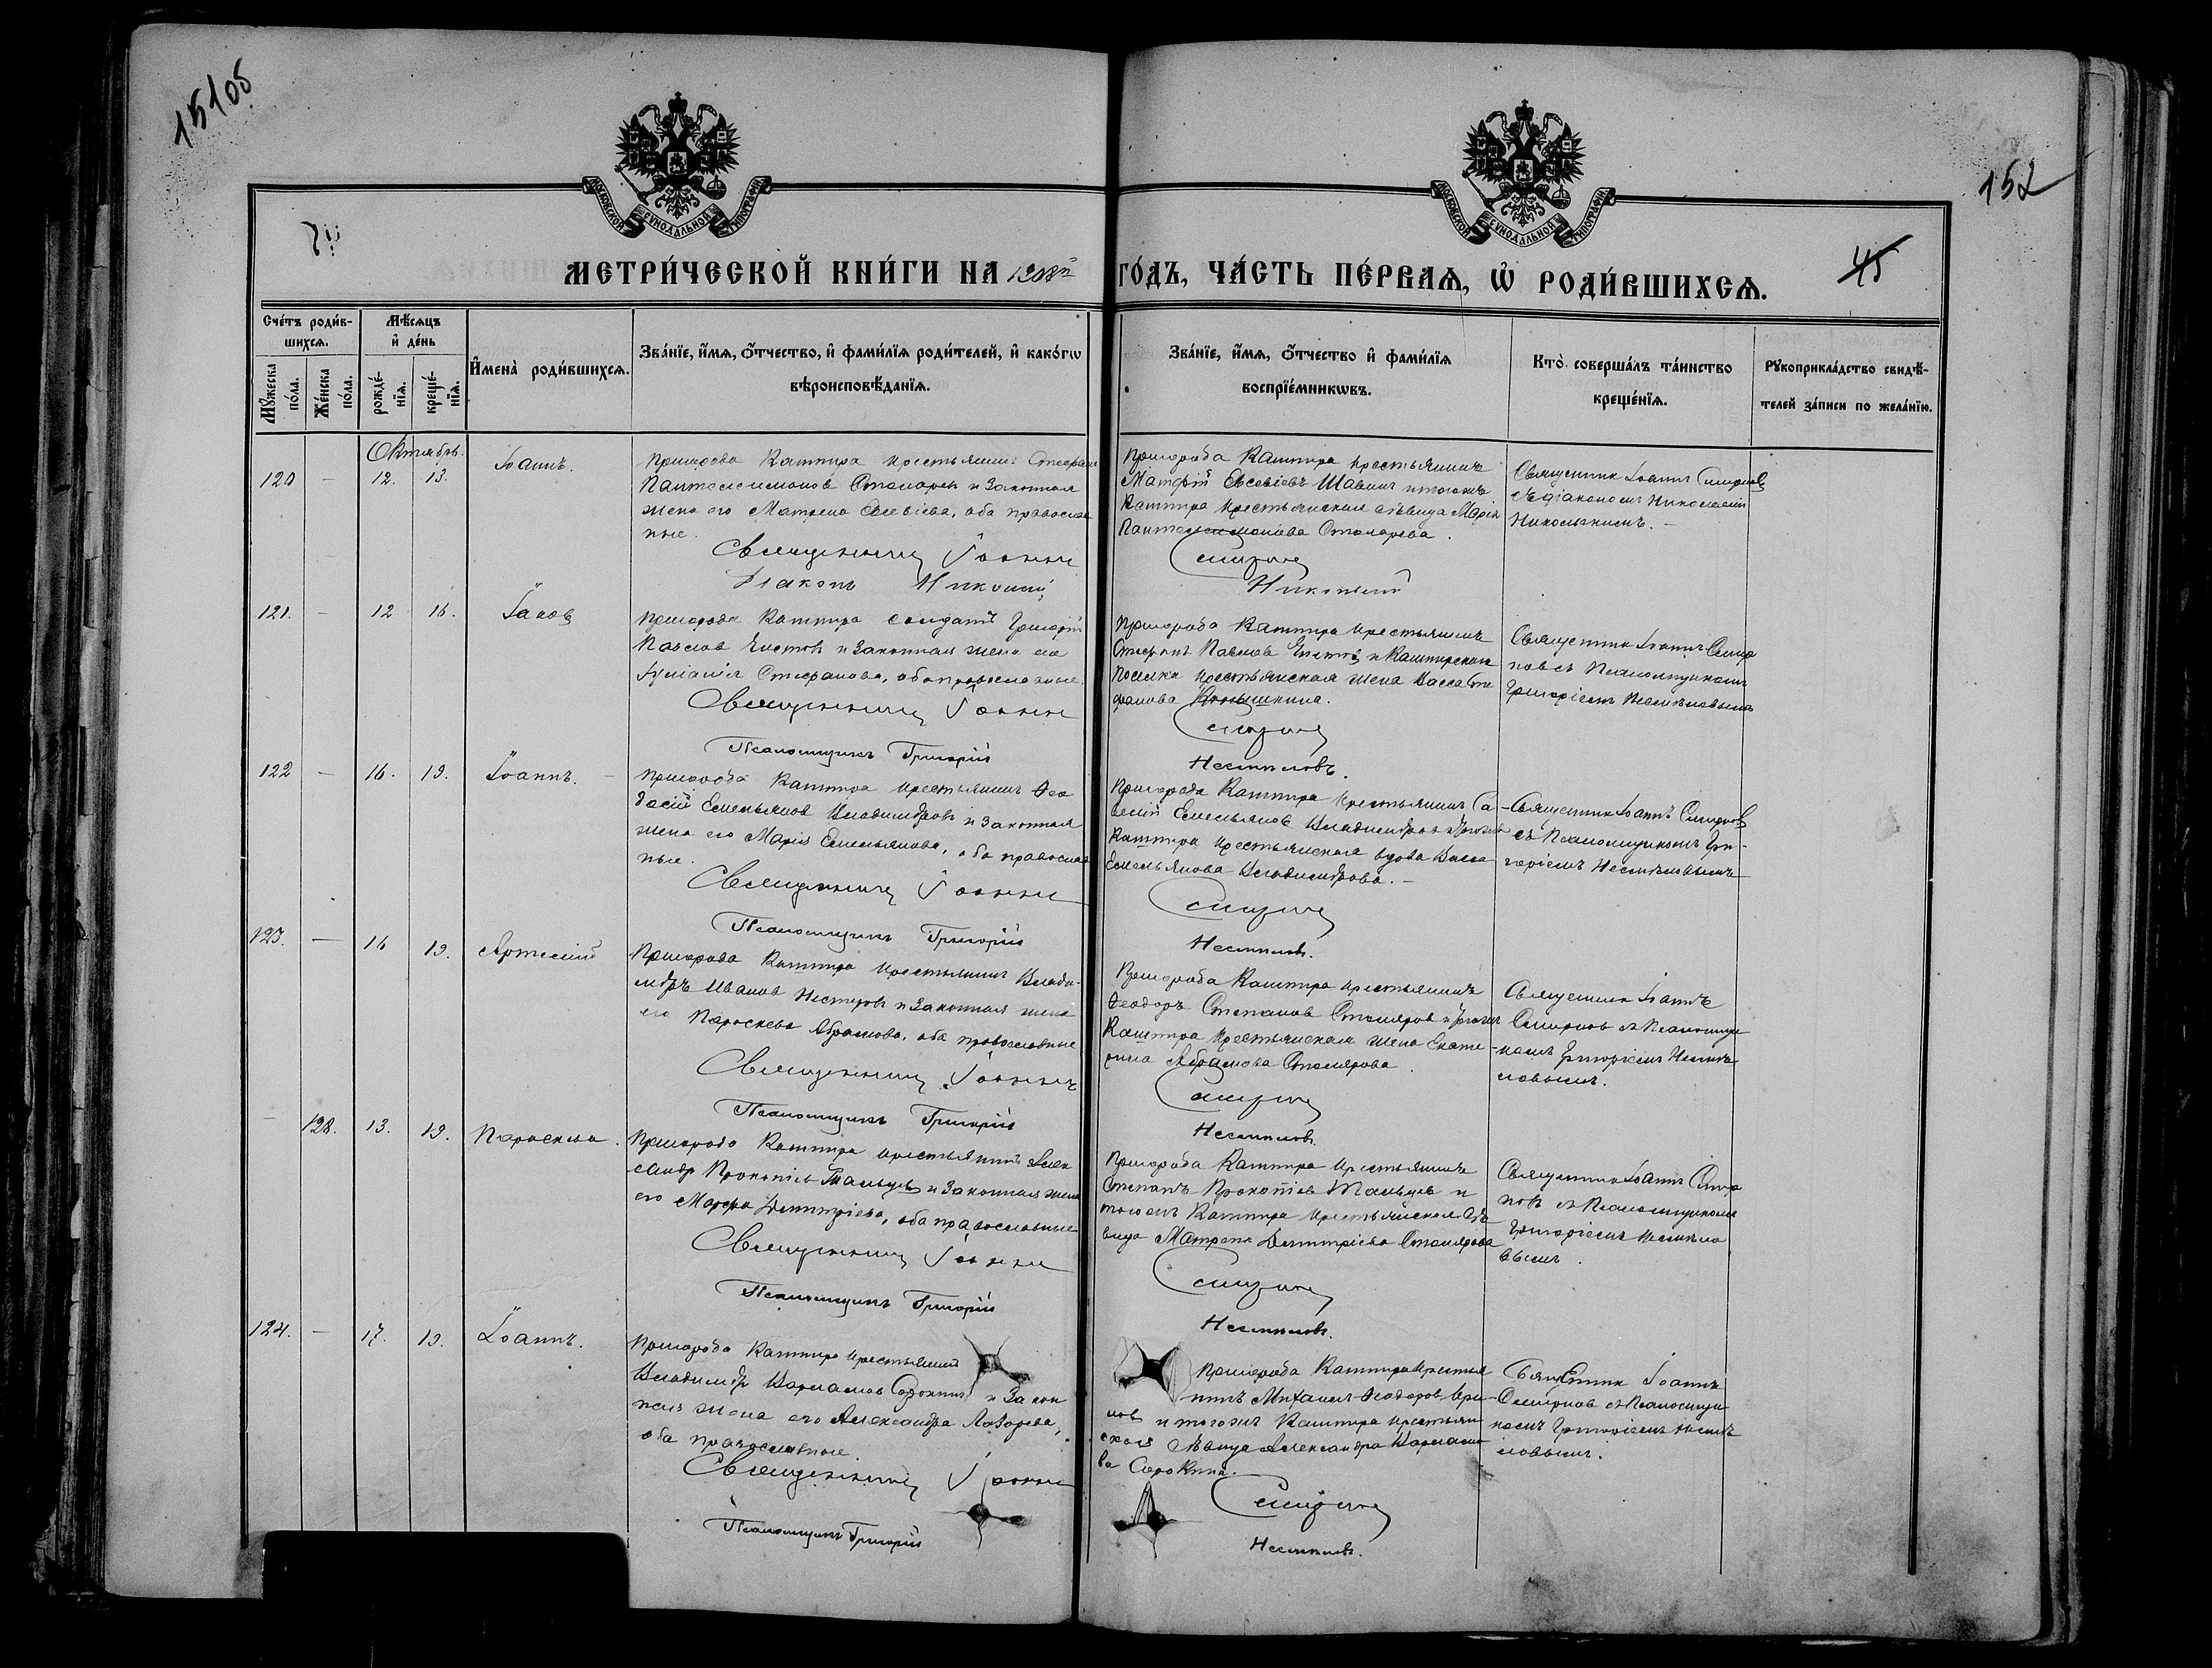 15105
152
45
МОСКОВСКОЙ СѴНОДАЛЬНОЙ ТИПОГРАФІИ
МОСКОВСКОЙ СѴНОДАЛЬНОЙ ТИПОГРАФІИ
МЕТРИ́ЧЕСКОЙ КНИ́ГИ НА
ГО́ДЪ, ЧА́СТЬ ПЕ́РВАѦ, Ѡ҆ РОДИ́ВШИХСѦ.
Сче́тъ роди́в-
шихсѧ.
Мꙋ́жеска по́ла.
Же́нска по́ла.
Мѣ́сѧцъ
и҆ де́нь
рожде́-
нїѧ.
креще́-
нїѧ.
И҆мена̀ роди́вшихсѧ.
Зва́нїе, и҆́мѧ, ѻ҆́тчество, и҆ фами́лїѧ роди́телей, и҆ како́гѡ
вѣроисповѣ́данїѧ.
Зва́нїе, и҆́мѧ, ѻ҆́тчество и҆ фами́лїѧ
воспрїе́мникѡвъ.
Кто̀ соверша́лъ та́инство
креще́нїѧ.
Рꙋкоприкла́дство свидѣ́-
телей за́писи по жела́нїю.
Октябрь.
120 — 12. 13. Іоаннъ.
Пригорода Каштира крестьянинъ Стефанъ
Пантелеимоновъ Столяровъ и законная
жена его Матрена Евсевіева, оба православ
ные.
Священникъ Іоаннъ
Діаконъ Николай
Пригорода Каштира крестьянинъ
Матфій Евсевіевъ Шавшинъ и тогожъ
Каштира крестьянская дѣвица Марія
Пантелеимонова Столярова.
Смирновъ
Никольскій
Священникъ Іоаннъ Смирновъ
съ діакономъ Николаемъ
Никольскимъ.
121. — 12 16. Іаковъ
Пригорода Каштира солдатъ Григорій
Павловъ и законная жена его
Іуліанія Стефанова, оба православные.
Священникъ Іоаннъ
Псаломщикъ Григорій
Пригорода Каштира крестьянинъ
Стефанъ Павловъ и Каштирскаго
поселка крестьянская жена Васса Сте
фанова
Смирновъ
Несмѣловъ.
Священникъ Іоаннъ Смир
новъ съ Псаломщикомъ
Григоріемъ Несмѣловымъ
122 — 16. 19. Іоаннъ.
Пригорода Каштира крестьянинъ Ѳео
досій Емельяновъ Владиміровъ и законная
жена его Марія Емельянова, оба православ
ные.
Священникъ Іоаннъ
Псаломщикъ Григорій
Пригорода Каштира крестьянинъ Са
велій Емельяновъ Владиміровъ и тогожъ
Каштира крестьянская вдова Васса
Емельянова Владимірова.
Смирновъ
Несмѣловъ.
Священникъ Іоаннъ Смирновъ
съ Псаломщикомъ Гри-
горіемъ Несмѣловымъ
123. — 16 19. Артемій
Пригорода Каштира крестьянинъ Влади-
міръ Ивановъ Нестеровъ и законная жена
его Параскева Абрамова, оба православные
Священникъ Іоаннъ
Псаломщикъ Григорій
Пригорода Каштира крестьянинъ
Ѳеодоръ Степановъ Столяровъ и тогожъ
Каштира крестьянская жена Екате-
рина Абрамова Столярова.
Смирновъ
Несмѣловъ.
Священникъ Іоаннъ
Смирновъ съ Псаломщи
комъ Григоріемъ Несмѣ
ловымъ.
— 128. 13. 19. Параскева.
Пригорода Каштира крестьянинъ Алек
сандръ Прокопіевъ Мальцевъ и законная жена
его Марѳа Димитріева, оба православные
Священникъ Іоаннъ
Псаломщикъ Григорій
Пригорода Каштира крестьянинъ
Степанъ Прокопіевъ Мальцевъ и
тогожъ Каштира крестьянская дѣ
вица Матрена Димитріева Столярова
Смирновъ
Несмѣловъ.
Священникъ Іоаннъ Смир
новъ съ Псаломщикомъ
Григоріемъ Несмѣло
вымъ.
124. — 17. 19. Іоаннъ.
Пригорода Каштира крестьянинъ
Владиміръ Сорокинъ и закон
ная жена его Александра Лазарева,
оба православные
Священникъ Іоаннъ
Псаломщикъ Григорій
Пригорода Каштира крестья
нинъ Михаилъ Ѳеодоровъ
и тогожъ Каштира крестьян
ская дѣвица Александра
ва Сорокина.
Смирновъ
Несмѣловъ.
Священникъ Іоаннъ
Смирновъ съ Псаломщи
комъ Григоріемъ Несмѣ
ловымъ.